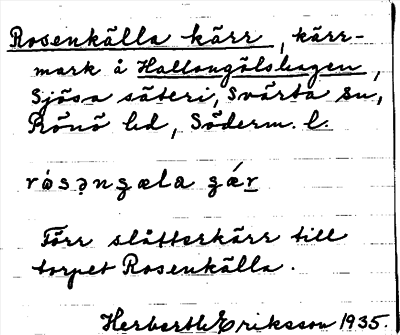 Rosenkälla kärr, kärr-
mark å Hallongölshagen,
Sjösa säteri, Svärta sn,
Rönö hd, Söderm. l.
Förr slåtterkärr till
torpet Rosenkälla.
Herbert Eriksson 1935.